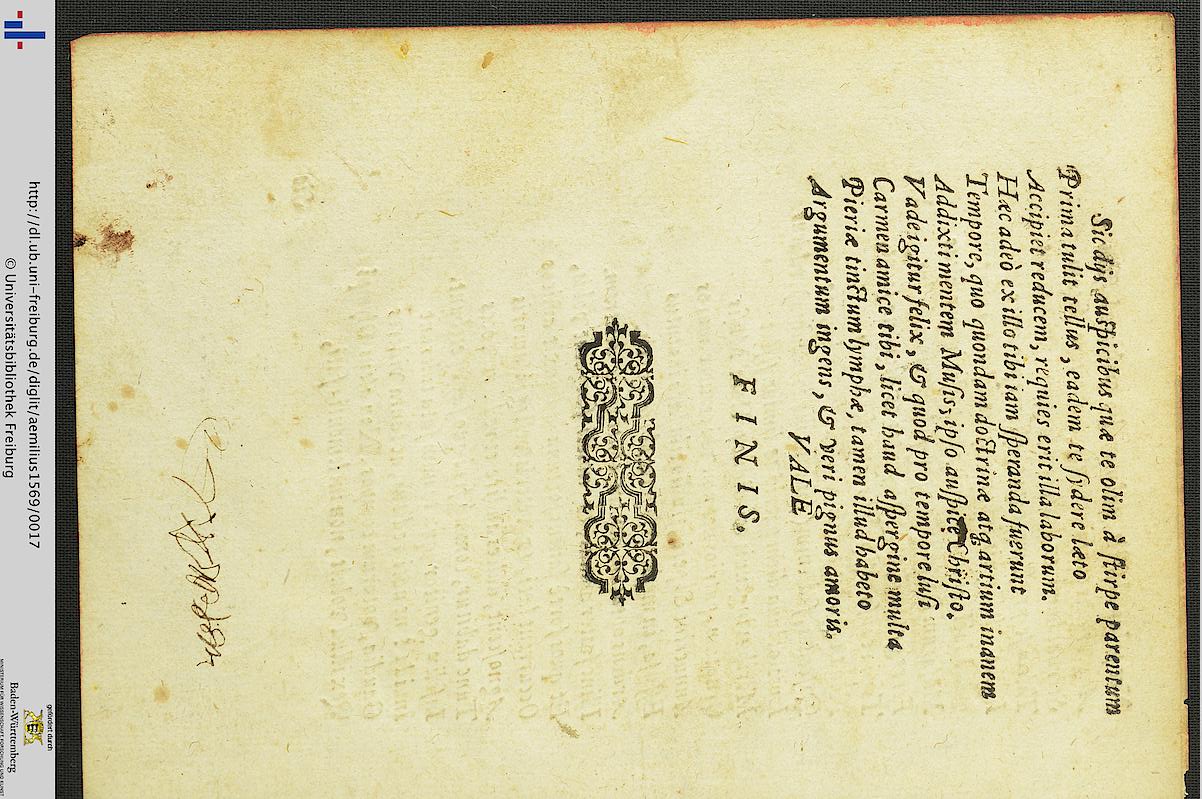 Sic dijs auſpicibus quæ te olim à ſtirpe parentum
Prima tulit tellus, eadem te ſidere læto
Accipiet reducem, requies erit illa laborum.
Hæc adeò ex illo tibi iam ſperanda fuerunt
Tempore, quo quondam doctrinæ atq; artium inanem
Addixti mentem Muſis, ipſo auſpice Chriſto.
Vade igitur felix, & quod pro tempore luſi
Carmen amice tibi, licet haud aſpergine multa
Pieriæ tinctum lymphæ, tamen illud habeto
Argumentum ingens, & veri pignus amoris.
VALE
FINIS.
http://dl.ub.uni-freiburg.de/diglit/aemilius1569/0017
© Universitätsbibliothek Freiburg
gefördert durch
Baden-Württemberg
MINISTERIUM FÜR WISSENSCHAFT, FORSCHUNG UND KUNST